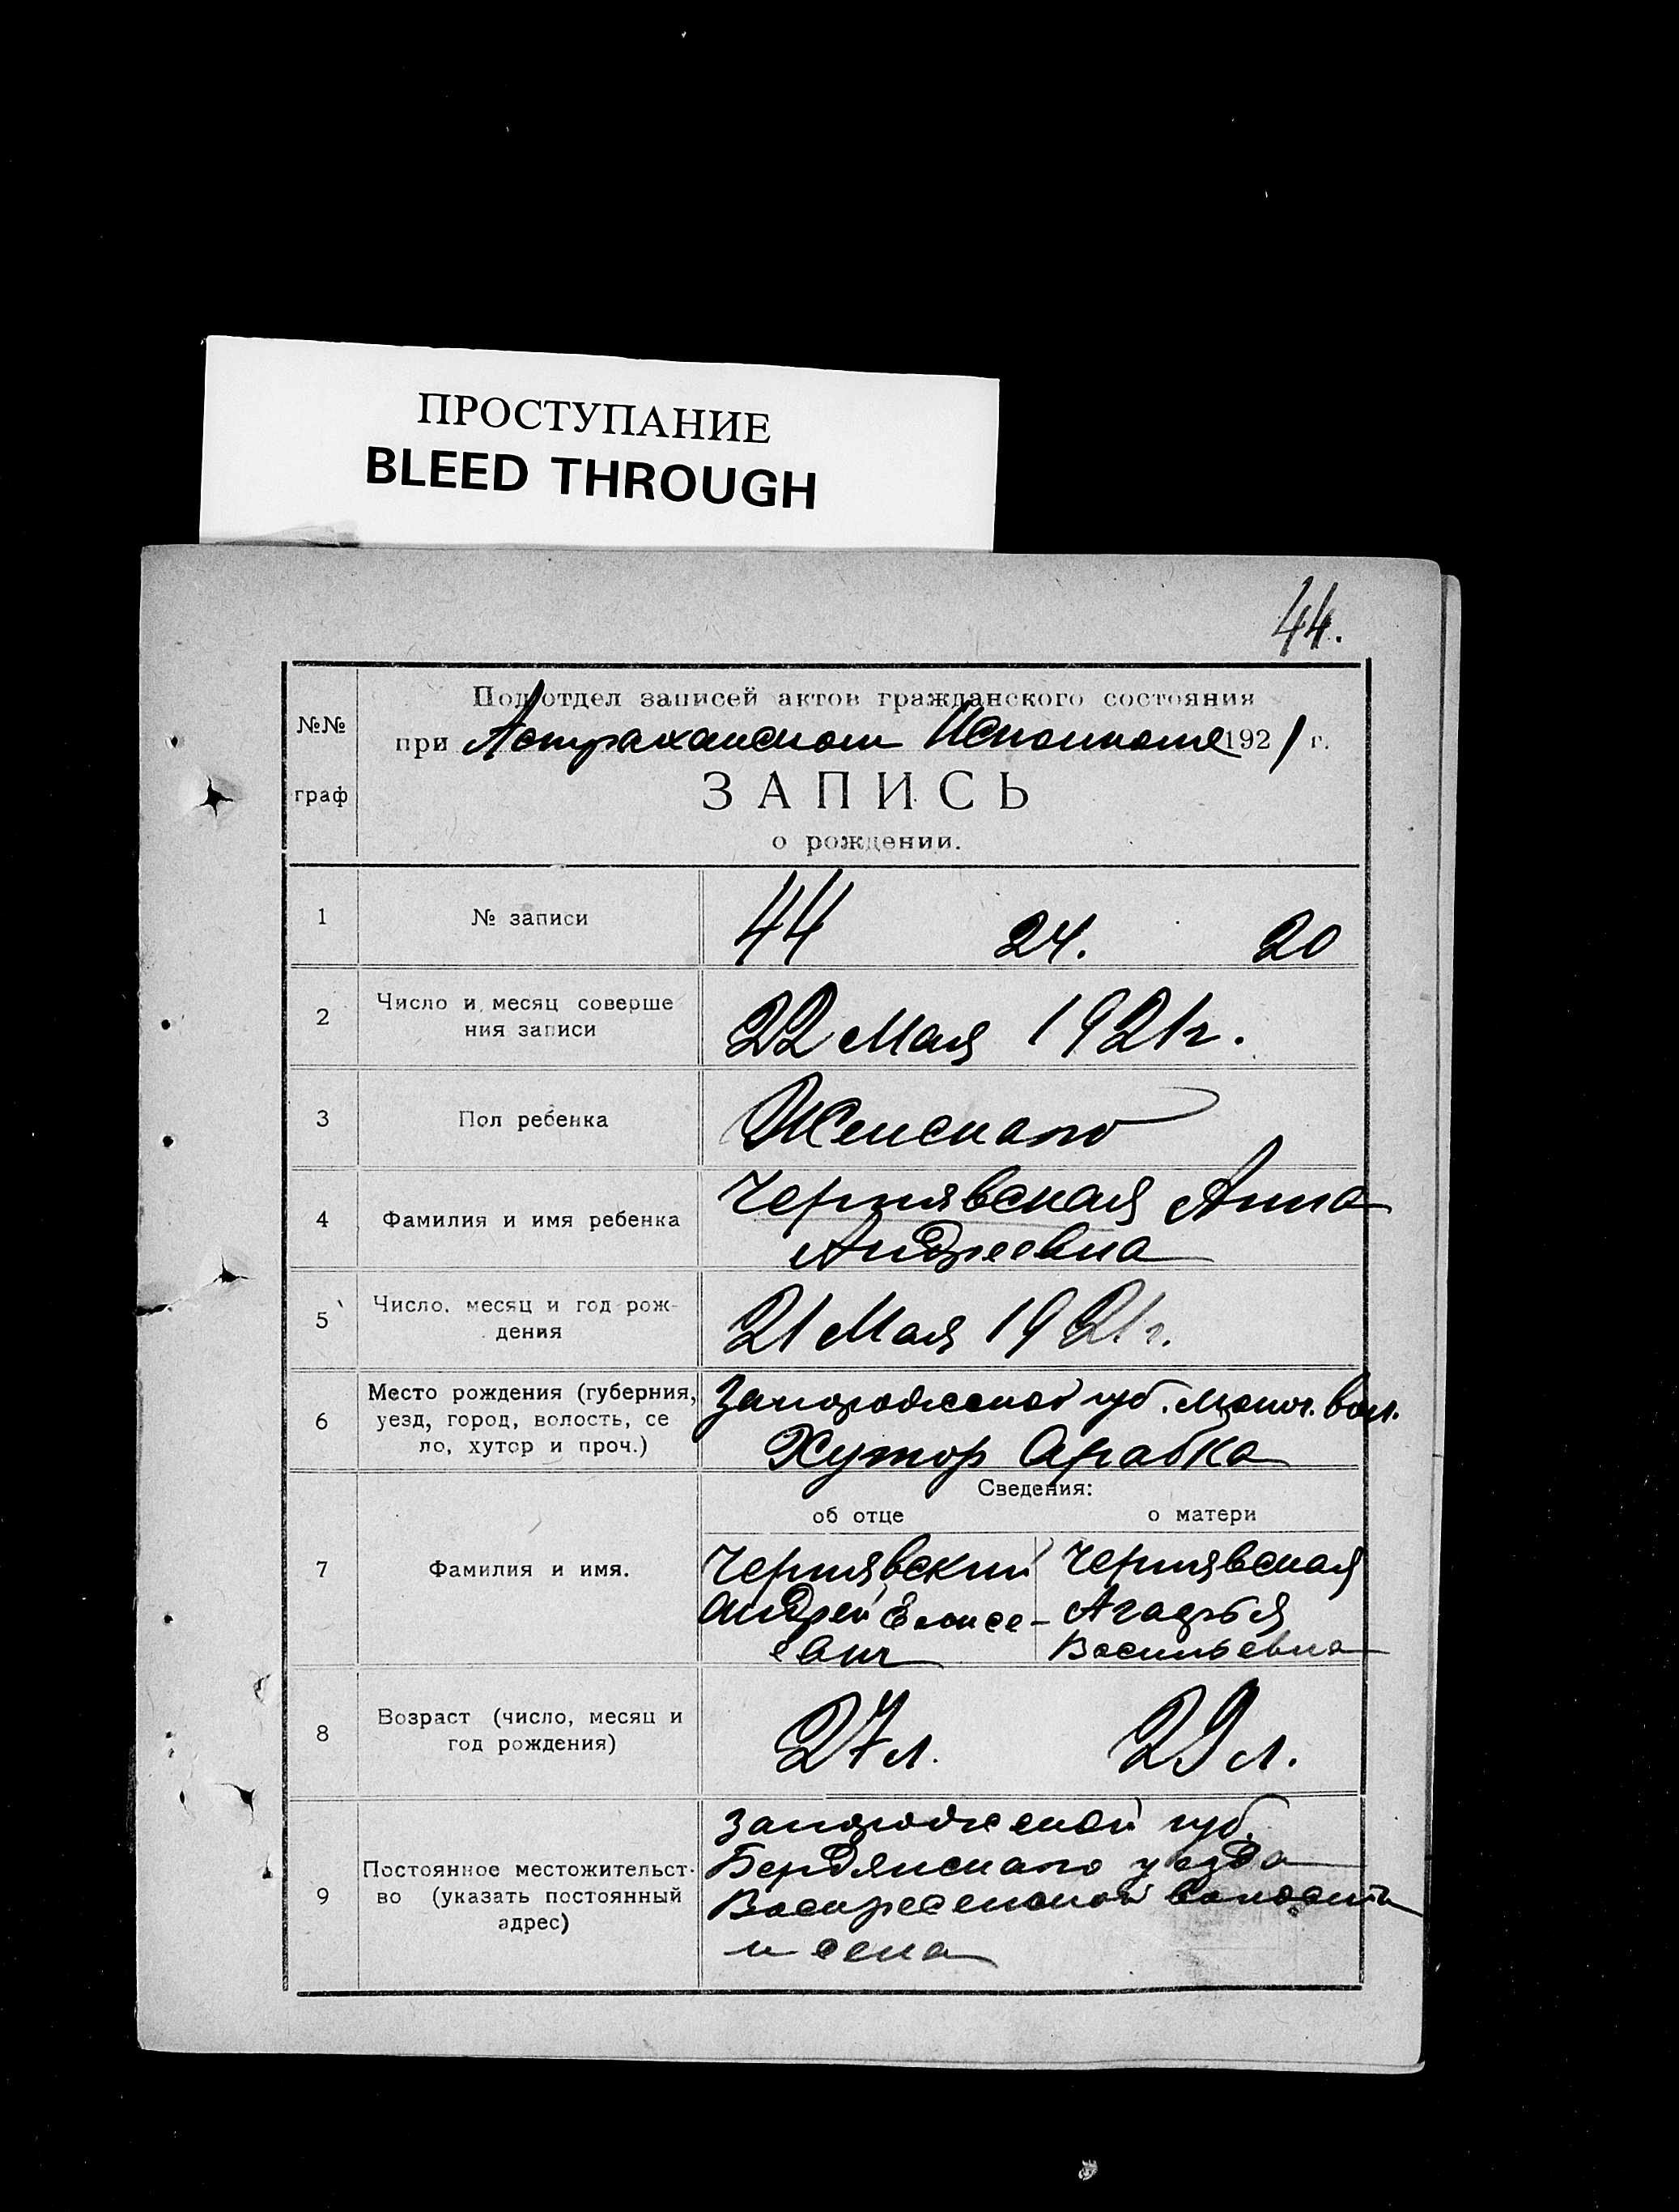 ПРОСТУПАНИЕ
BLEED THROUGH
44.
№№ граф
Подотдел записей актов гражданского состояния
при Астраханском Исполкоме 1921 г.
ЗАПИСЬ
о рождении.
1 № записи 44 24. 20
2 Число и месяц соверше
ния записи 22 Мая 1921 г.
3 Пол ребенка Женского
4 Фамилия и имя ребенка Чернявская Анна
Андреевна
5 Число, месяц и год рож-
дения 21 Мая 1921 г.
6 Место рождения (губерния,
уезд, город, волость, се
ло, хутор и проч.) Запорожской губ. вол.
Хутор Арабка
Сведения:
об отце о матери
7 Фамилия и имя. Чернявский Чернявская
Андрей Елисе- Агафья
евич Васильевна
8 Возраст (число, месяц и
год рождения) 27 л. 29 л.
9 Постоянное местожительст-
во (указать постоянный
адрес) Запорожской губ.
Бердянского уезда
Воскресенской волости
и села